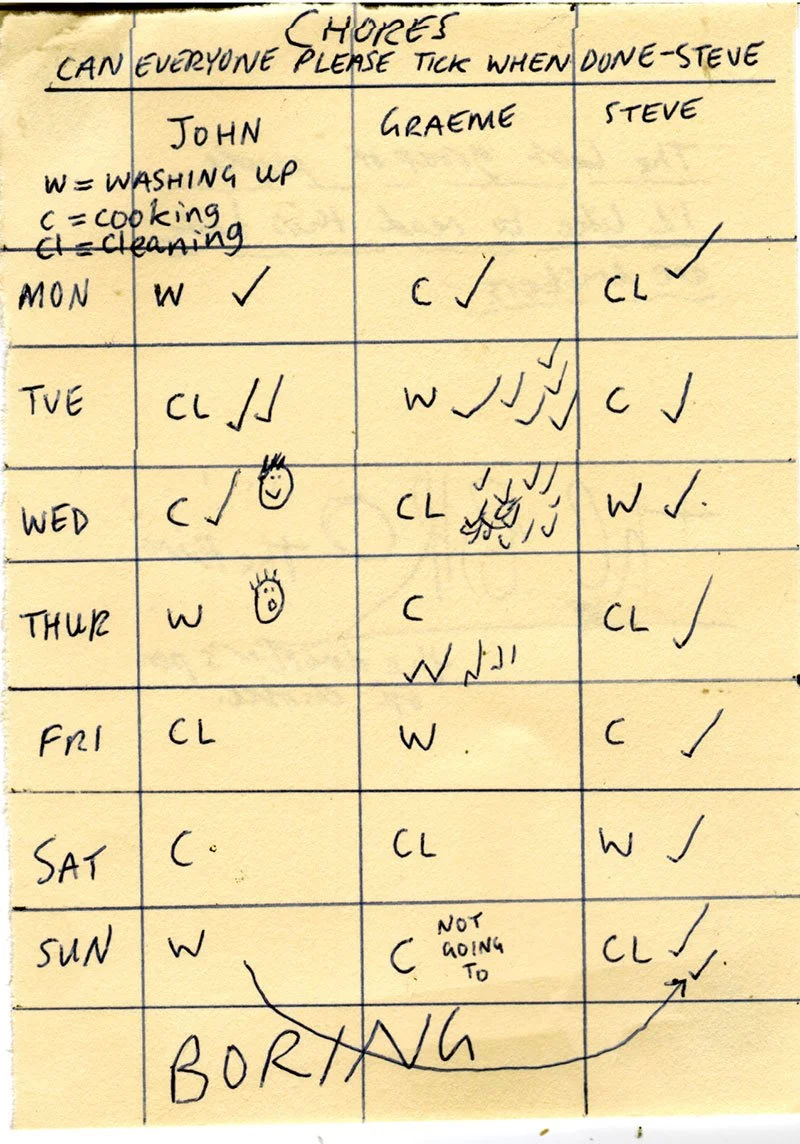 CHORES
CAN EVERYONE PLEASE TICK WHEN DONE-STEVE
JOHN GRAEME STEVE
W = WASHING UP
C = cooking
CL = cleaning
MON W ✓ C ✓ CL ✓
TUE CL ✓✓ W ✓✓✓✓✓✓ C ✓
WED C ✓ CL ✓✓✓✓✓✓✓✓ W ✓
THUR W C CL ✓
W ✓✓✓
FRI CL W C ✓
SAT C CL W ✓
SUN W C NOT GOING TO CL ✓ ✓
BORING